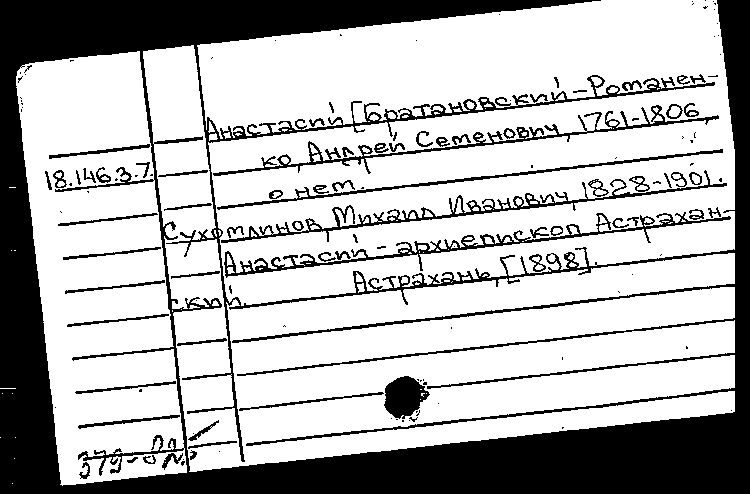 Анастасий [Братановский-Романен-
ко, Андрей Семенович, 1761-1806,
18.146.3.7
о нем.
Сухомлинов, Михаил Иванович, 1828-1901.
Анастасий - архиепископ Астрахан-
ский. Астрахань, [1898].
379-82